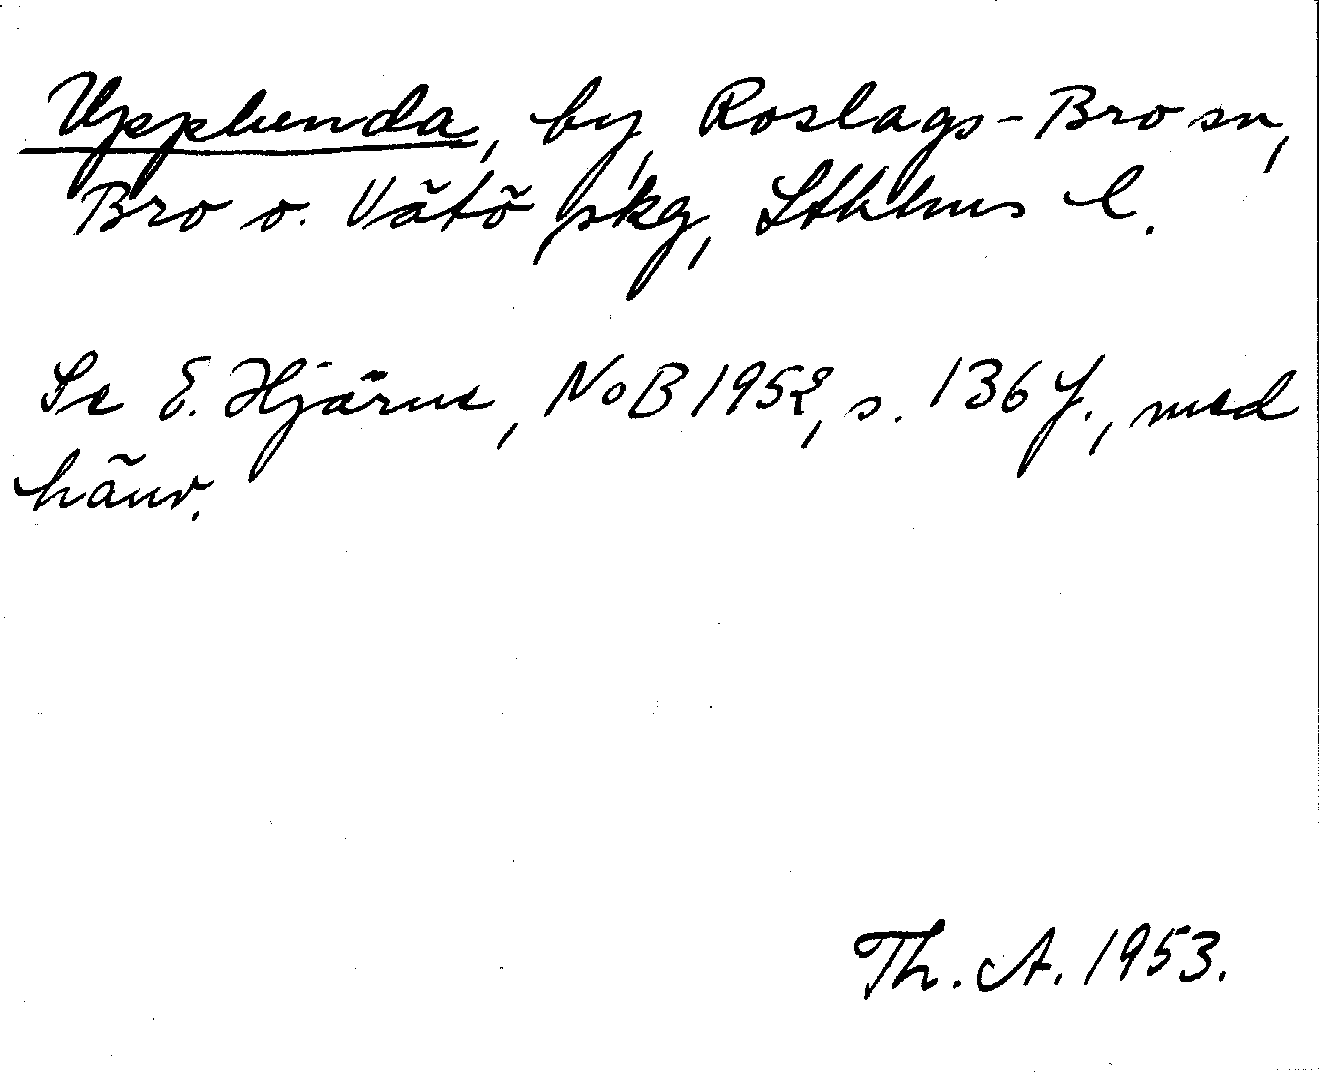 Upplunda, by, Roslags-Bro sn,
Bro o. Vätö skg, Sthlms l.
Se E. Hjärne, NoB 1952, s. 136 f., med
hänv.
Th. A. 1953.